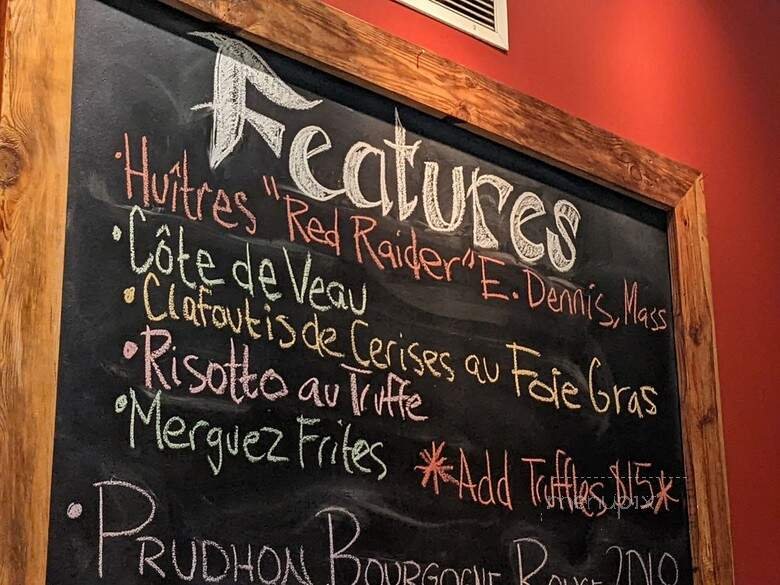 Features
• Huîtres "Red Raider" E. Dennis, Mass
• Côte de Veau
• Clafoutis de Cerises au Foie Gras
• Risotto au Truffe
• Merguez Frites
*Add Truffles $15*
menupix
• PRUDHON BOURGOGNE ROUGE 2019